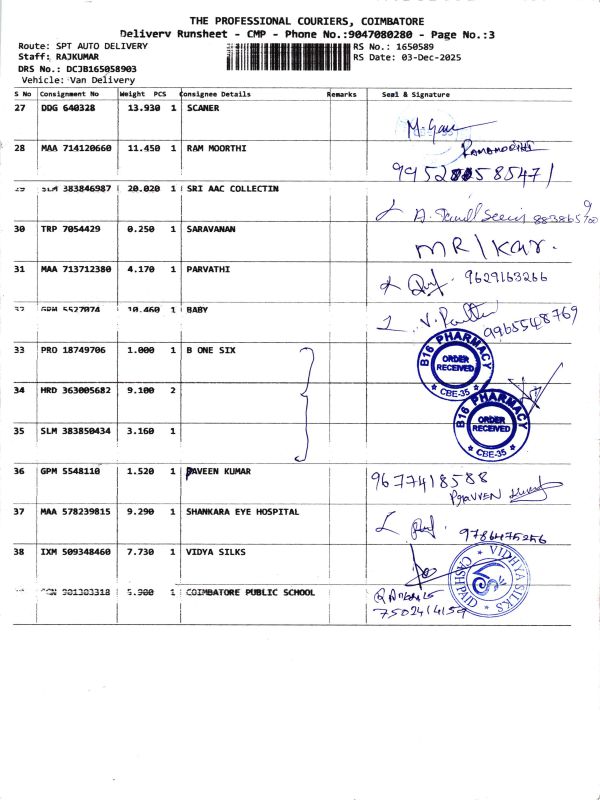 THE PROFESSIONAL COURIERS, COIMBATORE
Delivery Runsheet - CMP - Phone No.:9047080280 - Page No.:3
Route: SPT AUTO DELIVERY RS No.: 1650589
Staff: RAJKUMAR RS Date: 03-Dec-2025
DRS No.: DCJB165058903
Vehicle: Van Delivery
S No Consignment No Weight PCS Consignee Details Remarks Seal & Signature
27 DDG 640328 13.930 1 SCANER
28 MAA 714120660 11.450 1 RAM MOORTHI RAMAMOORTHI
29 SLM 383846987 20.020 1 SRI AAC COLLECTIN
30 TRP 7054429 0.250 1 SARAVANAN
31 MAA 713712380 4.170 1 PARVATHI 9629163266
32 GPM 5527074 10.460 1 BABY 9965548769
33 PRO 18749706 1.000 1 B ONE SIX
B16 PHARMACY
ORDER
RECEIVED
CBE-35
34 HRD 363005682 9.100 2
B16 PHARMACY
ORDER
RECEIVED
CBE-35
35 SLM 383850434 3.160 1
36 GPM 5548110 1.520 1 PAVEEN KUMAR 9677418588
37 MAA 578239815 9.290 1 SHANKARA EYE HOSPITAL 9786475256
38 IXM 509348460 7.730 1 VIDYA SILKS
VIDHYA SILKS
CASH PAID
5.900 1 COIMBATORE PUBLIC SCHOOL
7502414159